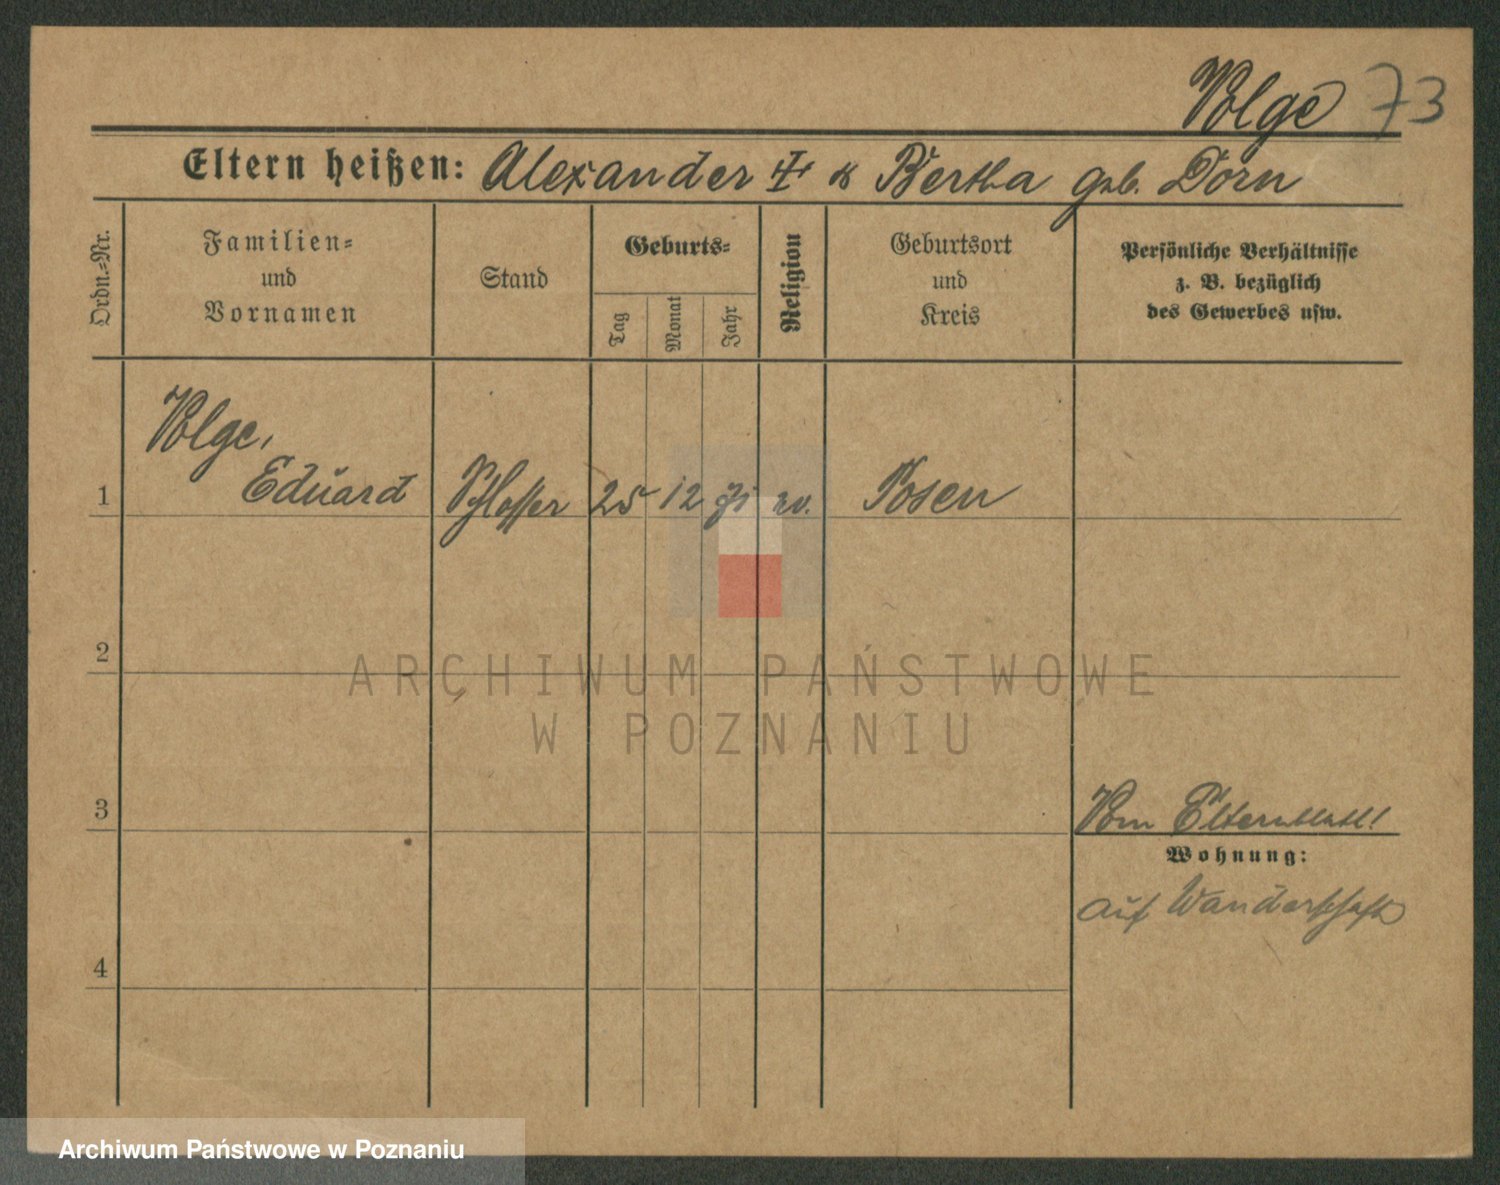 Volge 73
Eltern heißen: Alexander & Bertha geb. Dorn
Ordn.-Nr.
Familien-
und
Vornamen
Stand
Geburts-
Tag
Monat
Jahr
Religion
Geburtsort
und
Kreis
Persönliche Verhältnisse
z. B. bezüglich
des Gewerbes usw.
1
Volge,
Eduard
Schlosser
25
12
ev.
Posen
2
3
4
Vom Elternblatt!
Wohnung:
auf Wanderschaft
ARCHIWUM PAŃSTWOWE
W POZNANIU
Archiwum Państwowe w Poznaniu